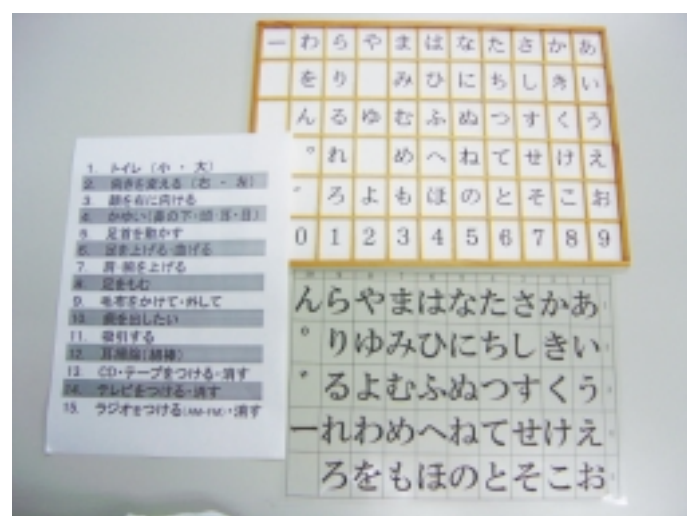 ー わ ら や ま は な た さ か あ
を り み ひ に ち し き い
ん る ゆ む ふ ぬ つ す く う
゜ れ め へ ね て せ け え
゛ ろ よ も ほ の と そ こ お
0 1 2 3 4 5 6 7 8 9
1. トイレ (小 ・ 大)
2. 向きを変える (右 ・ 左)
3. 顔を右に向ける
4. かゆい(鼻の下・頭・耳・目)
5. 足首を動かす
6. 足を上げる・曲げる
7. 肩・腕を上げる
8. 足をもむ
9. 毛布をかけて・外して
10. 痰を出したい
11. 吸引する
12. 耳掃除(綿棒)
13. CD・テープをつける・消す
14. テレビをつける・消す
15. ラジオをつける(AM・FM)・消す
んらやまはなたさかあ
゜りゆみひにちしきい
゛るよむふぬつすくう
ーれわめへねてせけえ
ろをもほのとそこお